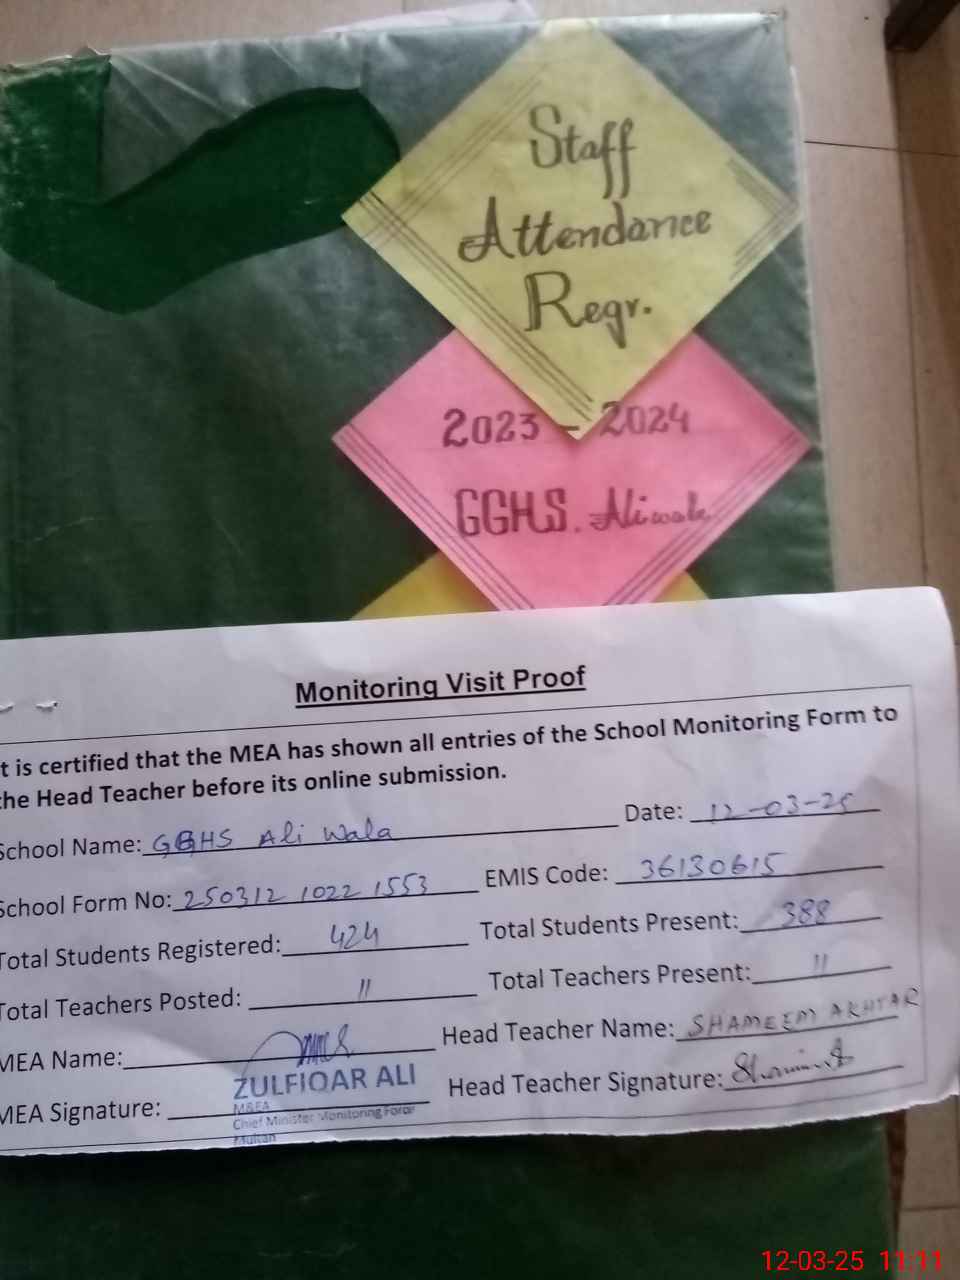 Staff
Attendance
Regr.
2023 - 2024
GGHS. Aliwala
Monitoring Visit Proof
t is certified that the MEA has shown all entries of the School Monitoring Form to
the Head Teacher before its online submission.
School Name: GGHS Ali Wala Date: 12-03-25
School Form No: 250312 1022 1553 EMIS Code: 36130615
Total Students Registered: 424 Total Students Present: 388
Total Teachers Posted: 11 Total Teachers Present: 11
MEA Name: Head Teacher Name: SHAMEEM AKHTAR
ZULFIQAR ALI
MEA Signature: Head Teacher Signature:
M&EA
Chief Minister Monitoring Force
Multan
12-03-25 11:11